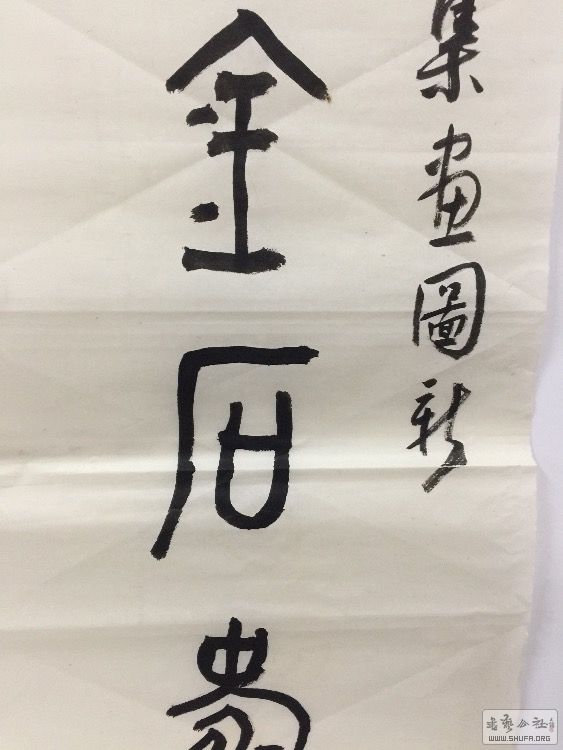 集畫圖新
金石
书藝公社
WWW.SHUFA.ORG